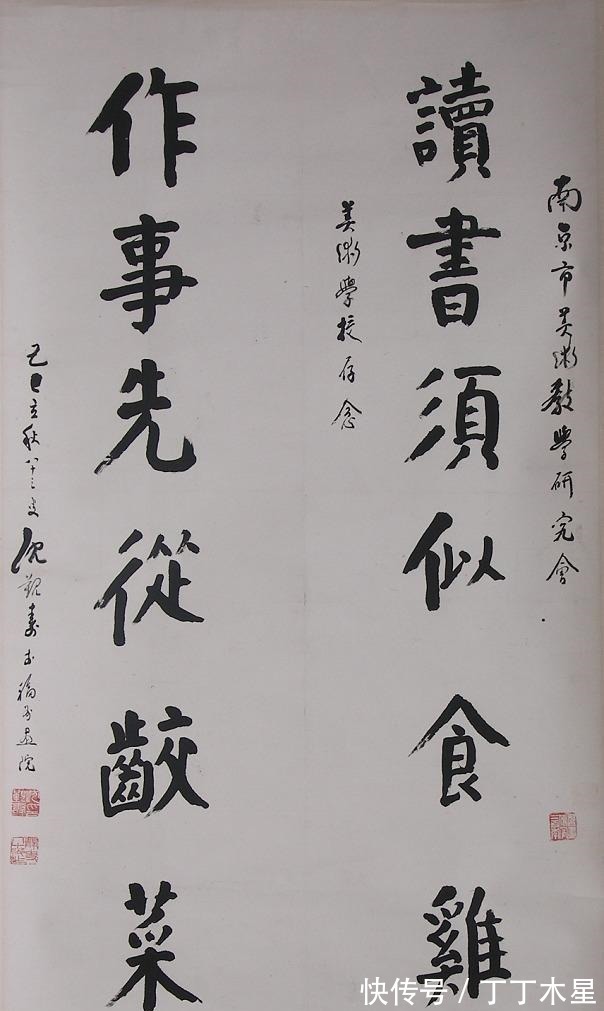 南京市美術教學研究會
讀書須似食雞
美術學校存念
作事先從齩菜
己巳立秋八十三叟沈觀壽書於畫院
快传号/丁丁木星